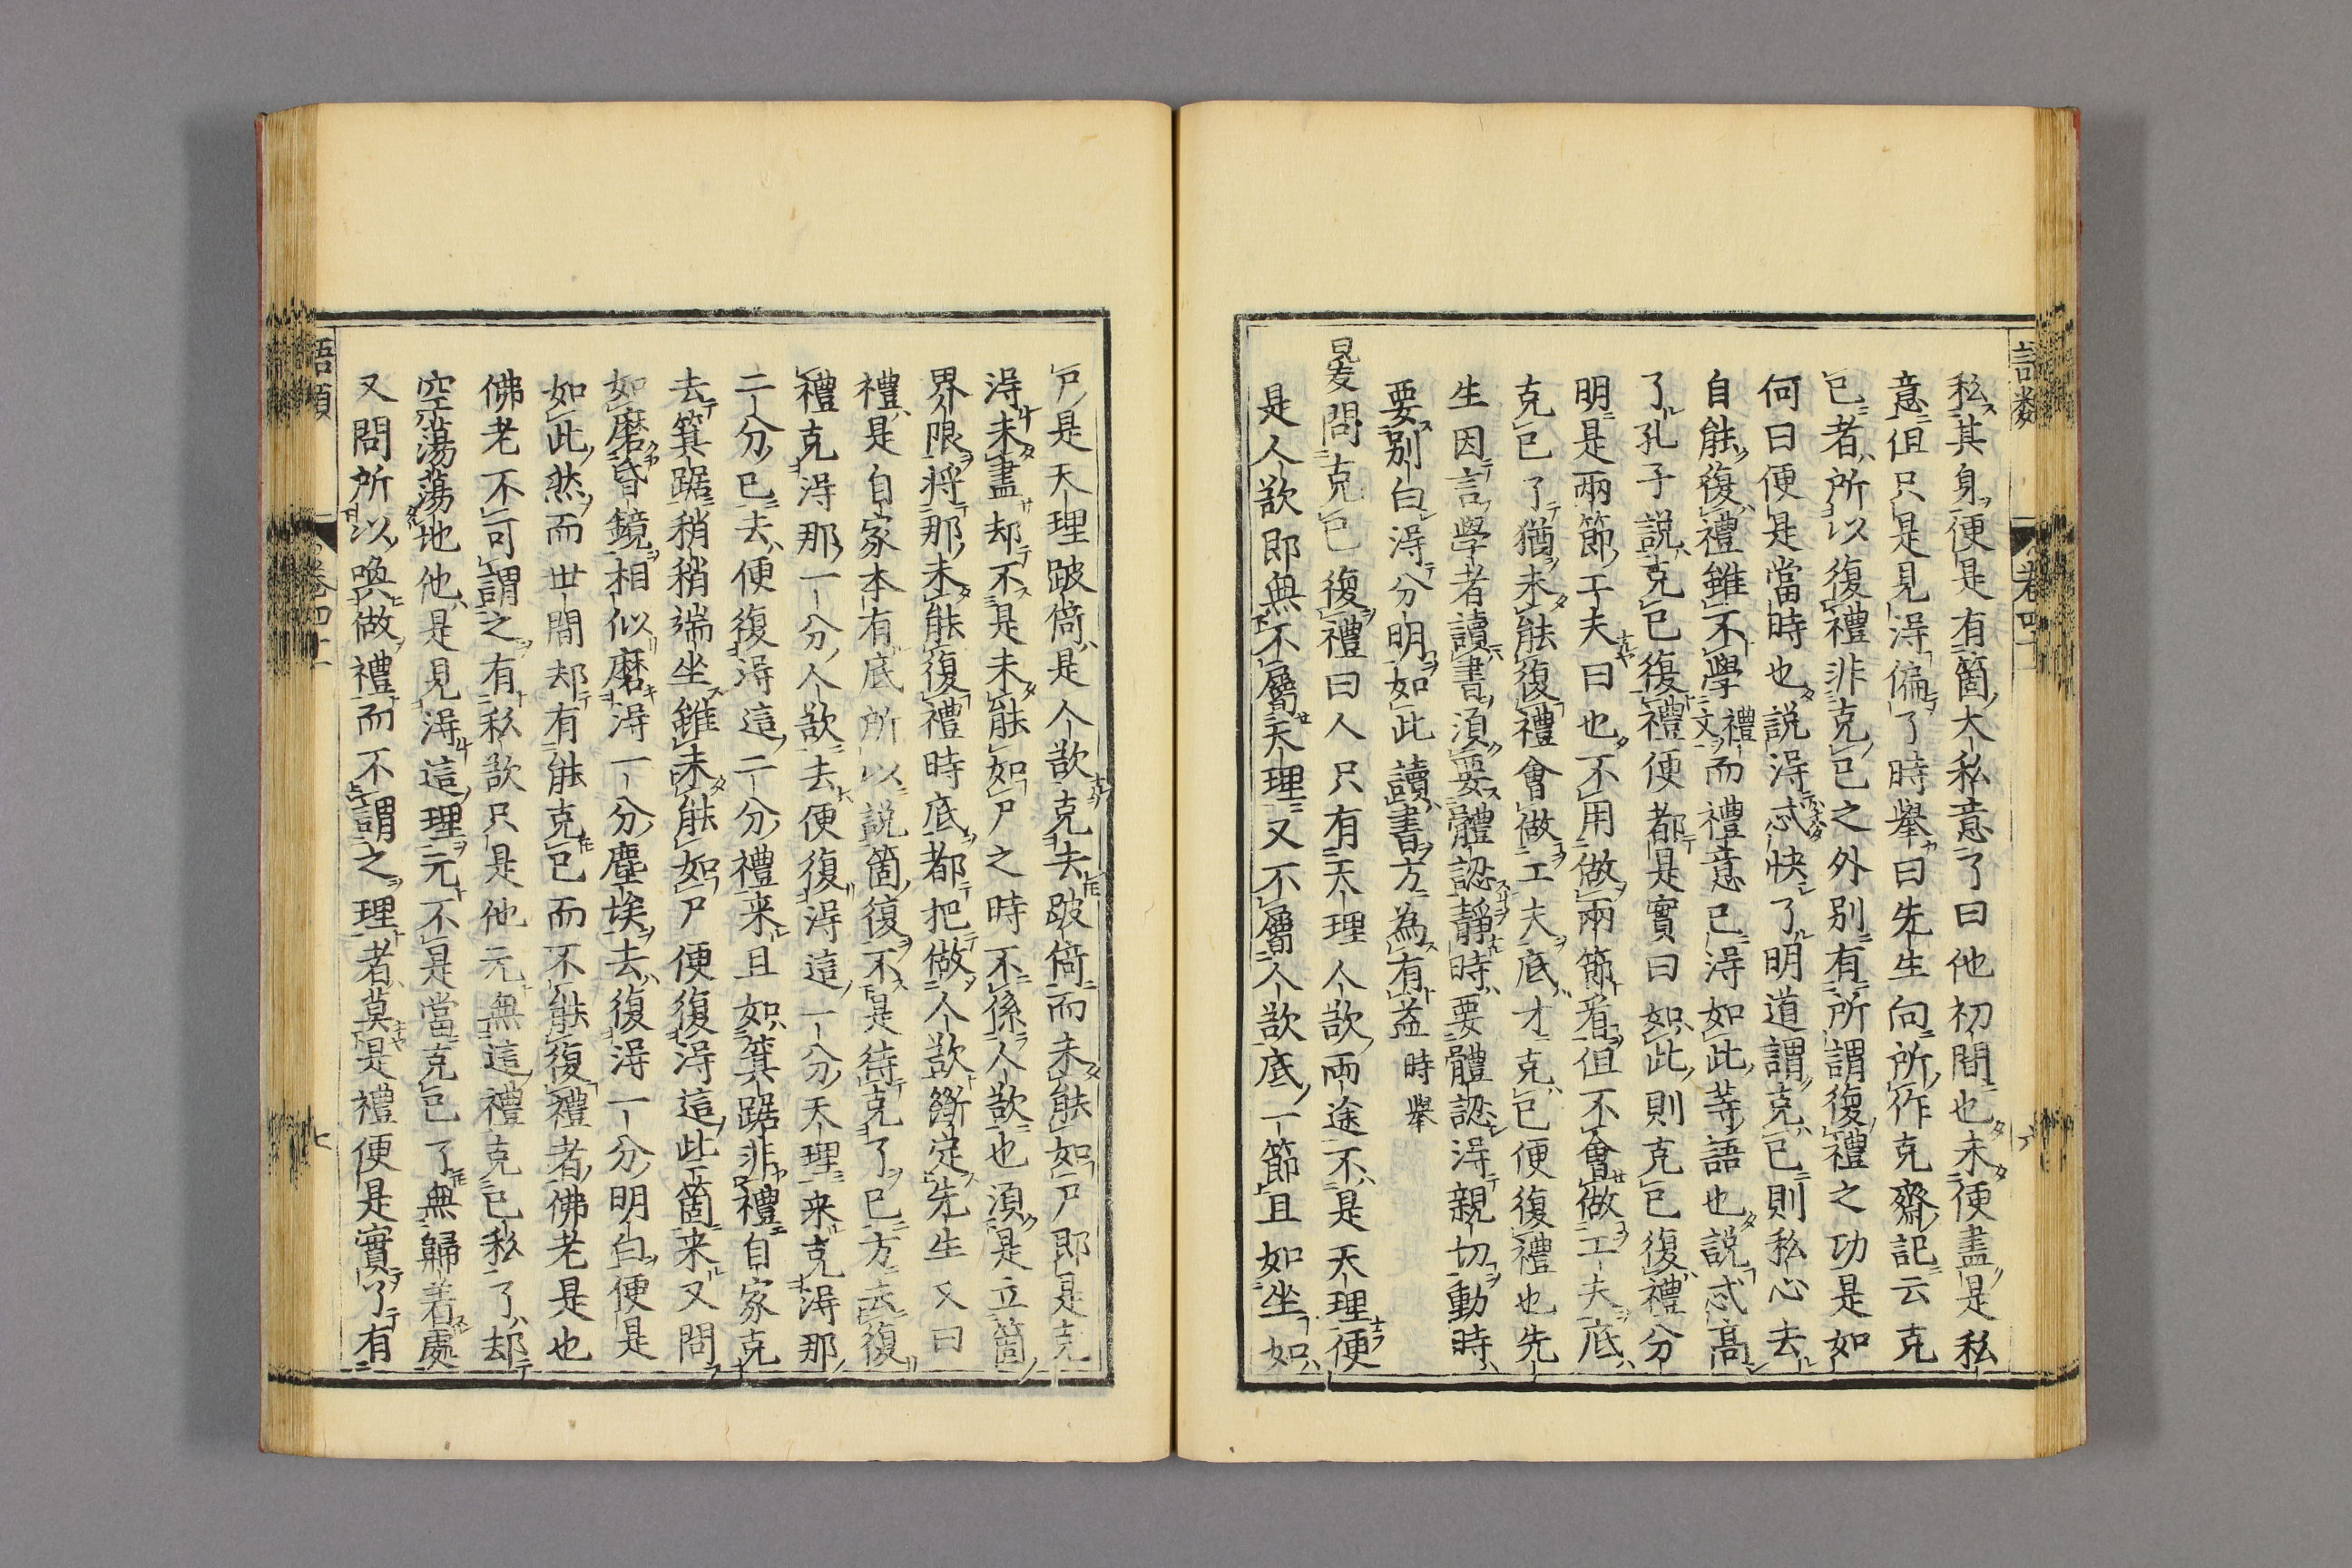 私其身便是有箇大私意了曰他初間也未便盡是私
意但只是見得偏了時舉曰先生向所作克齋記云克
己者所以復禮非克己之外別有所謂復禮之功是如
何曰便是當時也說得忒快了明道謂克己則私心去
自能復禮雖不學禮文而禮意已得如此等語也說忒高
了孔子說克己復禮便都是實曰如此則克己復禮分
明是兩節工夫曰也不用做兩節看但不會做工夫底
克己了猶未能復禮會做工夫底才克己便復禮也先
生因言學者讀書須要體認靜時要體認得親切動時
要別白得分明如此讀書方為有益 時舉
晏問克己復禮曰人只有天理人欲兩途不是天理便
是人欲即無不屬天理又不屬人欲底一節且如坐如
尸是天理跛倚是人欲克去跛倚而未能如尸即是克
得未盡却不是未能如尸之時不係人欲也須是立箇
界限將那未能復禮時底都把做人欲斷定先生又曰
禮是自家本有底所以說箇復不是待克了己方去復
禮克得那一分人欲去便復得這一分天理来克得那
二分己去便復得這二分禮来且如箕踞非禮自家克
去箕踞稍稍端坐雖未能如尸便復得這些箇来又問
如磨昏鏡相似磨得一分塵埃去復得一分明白便是
如此然而世間却有能克己而不能復禮者佛老是也
佛老不可謂之有私欲只是他元無這禮克己私了却
空蕩蕩地他是見得這理元不是當克己了無歸着處
又問所以喚做禮而不謂之理者莫是禮便是實了有
語類
卷四十一
七